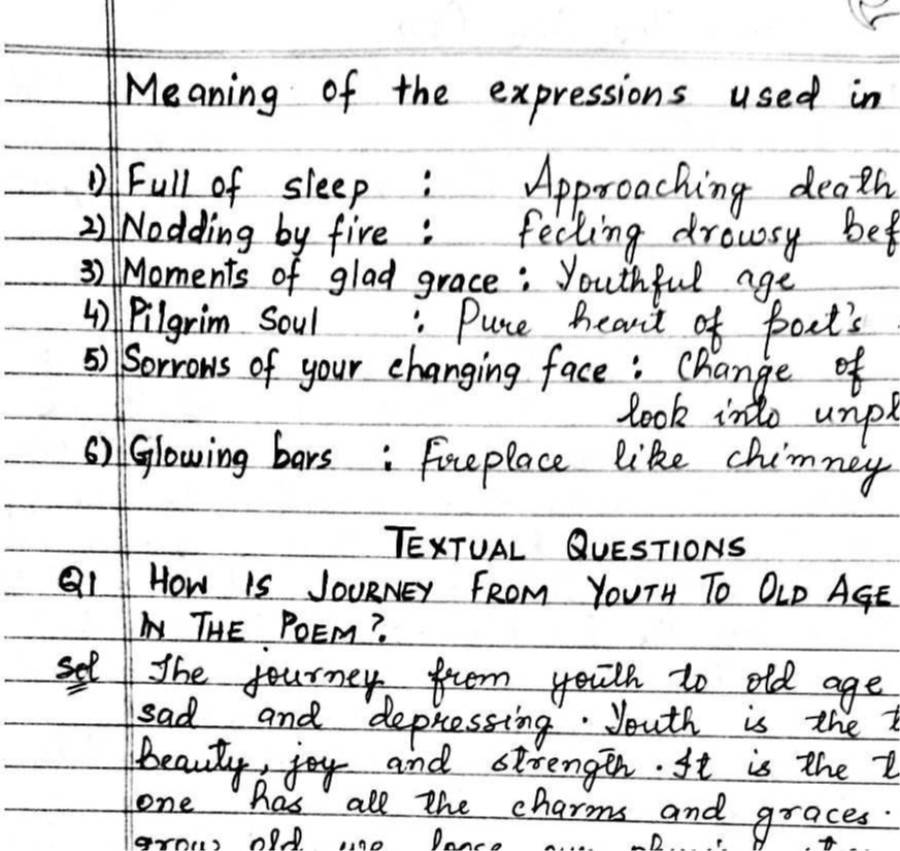 Meaning of the expressions used in
1) Full of sleep : Approaching death
2) Nodding by fire : feeling drowsy bef
3) Moments of glad grace : Youthful age
4) Pilgrim Soul : Pure heart of poet's
5) Sorrows of your changing face : Change of
look into unpl
6) Glowing bars : Fireplace like chimney
TEXTUAL QUESTIONS
Q1 HOW IS JOURNEY FROM YOUTH TO OLD AGE
IN THE POEM?
Sol The journey from youth to old age
sad and depressing. Youth is the t
beauty, joy and strength. It is the t
one has all the charms and graces.
grow old we